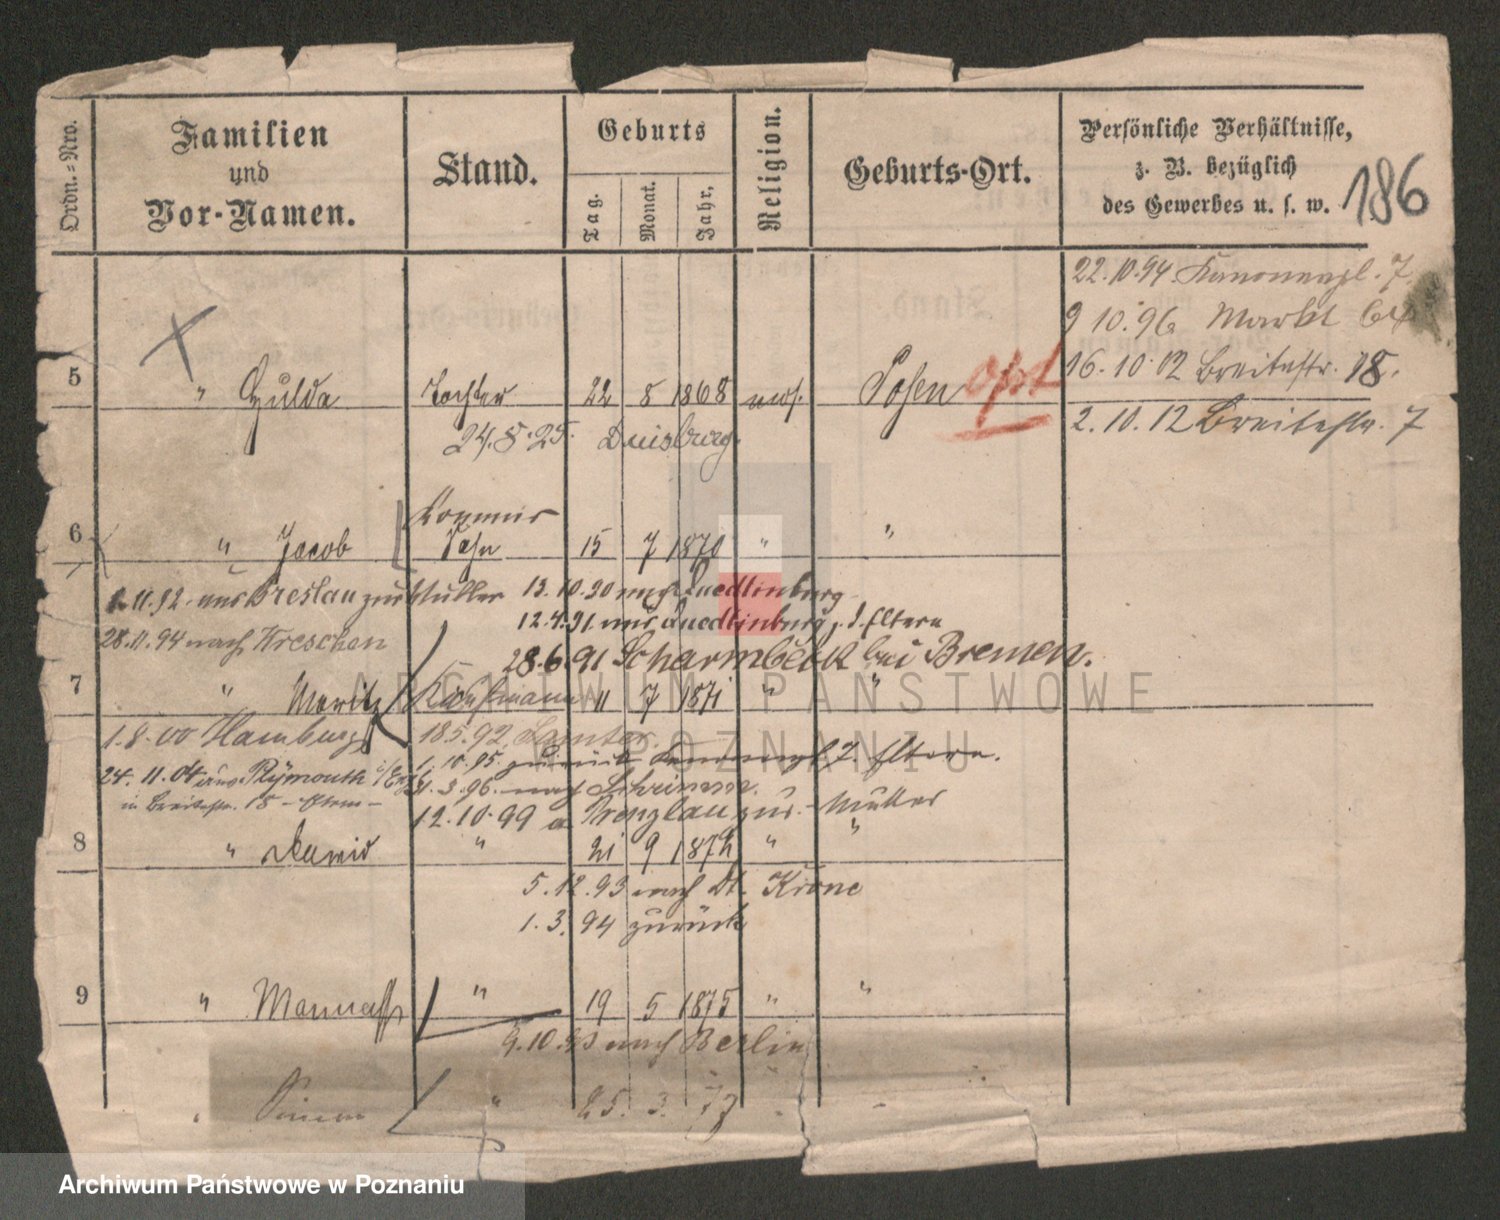 Ordn.-Nro.
Familien
und
Vor-Namen.
Stand.
Geburts
Tag.
Monat.
Jahr.
Religion.
Geburts-Ort.
Persönliche Verhältnisse,
z. B. bezüglich
des Gewerbes u. s. w.
186
22.10.94 Kanonenpl. 7
9 10.96 Markt
16.10.02 Breitestr. 18.
5 " Hulda Tochter 22 8 1868 mos. Posen opt
2.10.12 Breitestr. 7
24.8.25. Duisburg.
6 " Jacob Commis Sohn 15 7 1870 " "
11.92. aus Breslau zur Mutter 13.10.90 nach Quedlinburg
12.4.91 aus Quedlinburg, z. Eltern
28.11.94 nach Wreschen
28.6.91 Scharmbeck bei Bremen.
7 " Moritz Kaufmann 11 7 1871 " "
1.8.00 Hamburg 18.5.92
1.10.95. zurück 7. Eltern.
24.11.04 aus Plymouth
in Breitestr. 18 - Eltern -
3.96. nach Schrimm.
12.10.99 a. Prenzlau zur Mutter
8 " David " 21 9 1872 " "
5.12.93 nach Dt. Krone
1.3.94 zurück
9 " Mannass " 19 5 1875 " "
9.10. nach Berlin
" " 25. 3. 77
ARCHIWUM PAŃSTWOWE
W POZNANIU
Archiwum Państwowe w Poznaniu